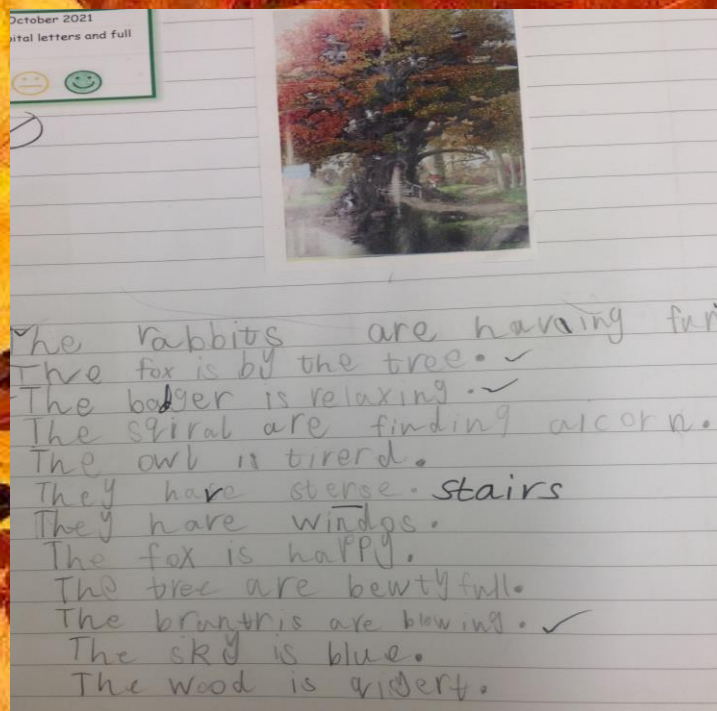 October 2021
pital letters and full
The rabbits are having fun
The fox is by the tree. ✓
The badger is relaxing. ✓
The sqiral are finding aicorn.
The owl is tirerd.
They have sterse. stairs
They have windos.
The fox is happy.
The tree are bewtyfull.
The brantris are blowing. ✓
The sky is blue.
The wood is